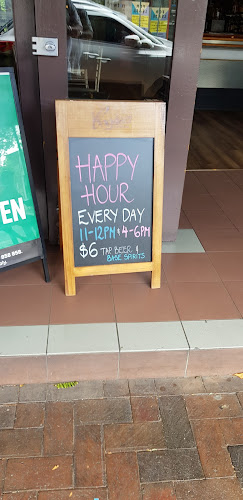 HAPPY
HOUR
EVERY DAY
11-12PM & 4-6PM
$6 TAP BEER &
BASE SPIRITS